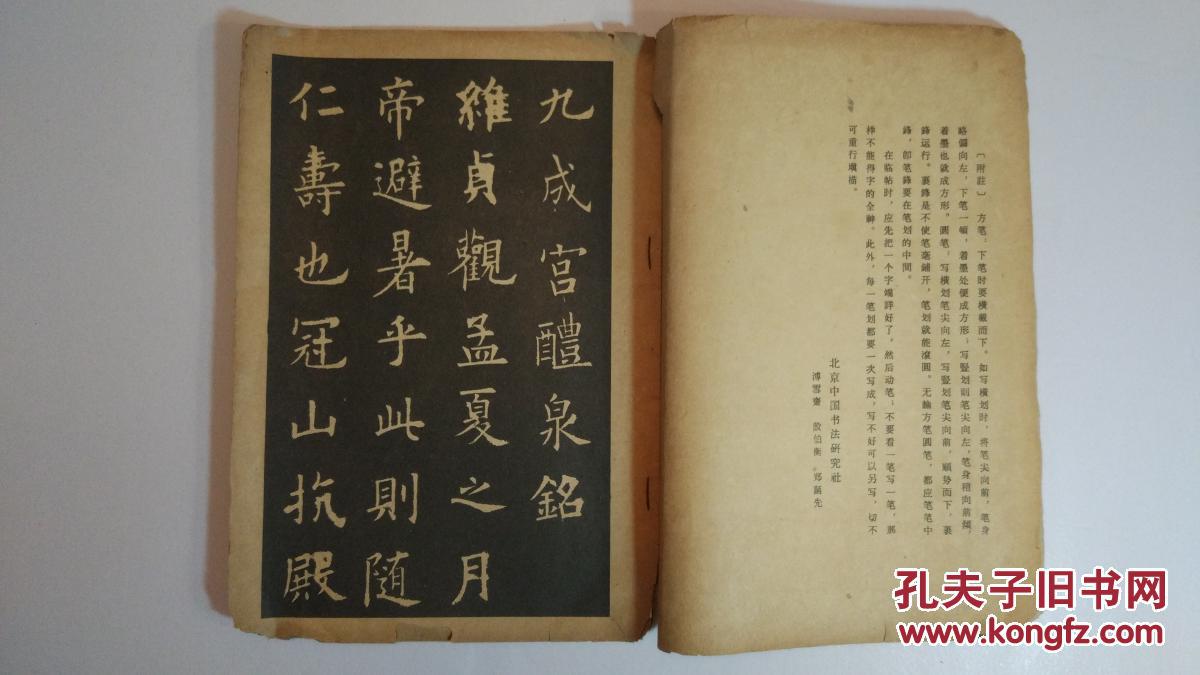 〔附註〕 方笔：下笔时要橫截而下。如写橫划时，将笔尖向前，笔身
略偏向左，下笔一頓，着墨处便成方形；写竪划則笔尖向左，笔身稍向前傾，
着墨也就成方形。圆笔：写橫划笔尖向左，写竪划笔尖向前，順势而下，裹
鋒运行。裹鋒是不使笔毫鋪开，笔划就能滾圓。无論方笔圓笔，都应笔笔中
鋒，卽笔鋒要在笔划的中間。
在临帖时，应先把一个字端詳好了，然后动笔；不要看一笔写一笔，那
样不能得字的全神。此外，每一笔划都要一次写成，写不好可以另写，切不
可重行塡描。
北京中国书法研究社
溥雪齋 殷伯衡 郑誦先
九成宮醴泉銘
維貞觀孟夏之月
帝避暑乎此則随
仁壽也冠山抗殿
孔夫子旧书网
www.kongfz.com